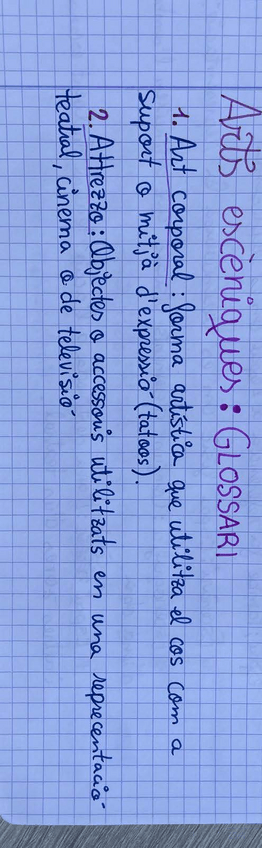 Arts escèniques: GLOSSARI
1. Art corporal: forma artística que utilitza el cos com a
suport o mitjà d'expressió (tatoos).
2. Attrezzo: Objectes o accessoris utilitzats en una representació
teatral, cinema o de televisió